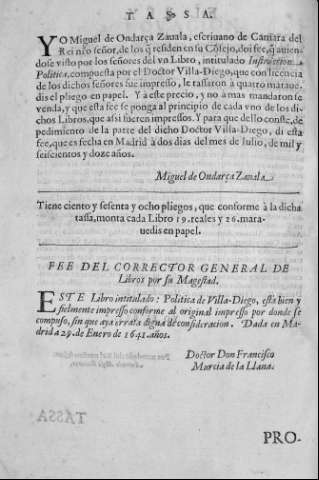 TASSA.
YO Miguel de Ondarça Zauala, escriuano de Camara del
Rei nr̃o señor, de los q̃ residen en su Cõsejo, doi fee, q̃ auien-
dose visto por los señores del vn Libro, intitulado Instruccion
Politica, compuesta por el Doctor Villa-Diego, que con licencia
de los dichos señores fue impresso, le tassaron à quatro maraue.
dis el pliego en papel. Y à este precio, y no à mas mandaron se
venda, y que esta fee se ponga al principio de cada vno de los di-
chos Libros, que assi fueren impressos. Y para que dello conste, de
pedimiento de la parte del dicho Doctor Villa-Diego, di esta
fee, que es fecha en Madrid à dos dias del mes de Iulio, de mil y
seiscientos y doze años.
Miguel de Ondarça Zauala.
Tiene ciento y sesenta y ocho pliegos, que conforme à la dicha
tassa, monta cada Libro 19. reales y 26. mara-
uedis en papel.
FEE DEL CORRECTOR GENERAL DE
Libros por su Magestad.
ESTE Libro intitulado: Politica de Villa-Diego, està bien y
fielmente impresso conforme al original impresso por donde se
compuso, sin que aya errata digna de consideracion. Dada en Ma-
drid a 29. de Enero de 1641. años.
Doctor Don Francisco
Murcia de la Llana.
TASSA
PRO-